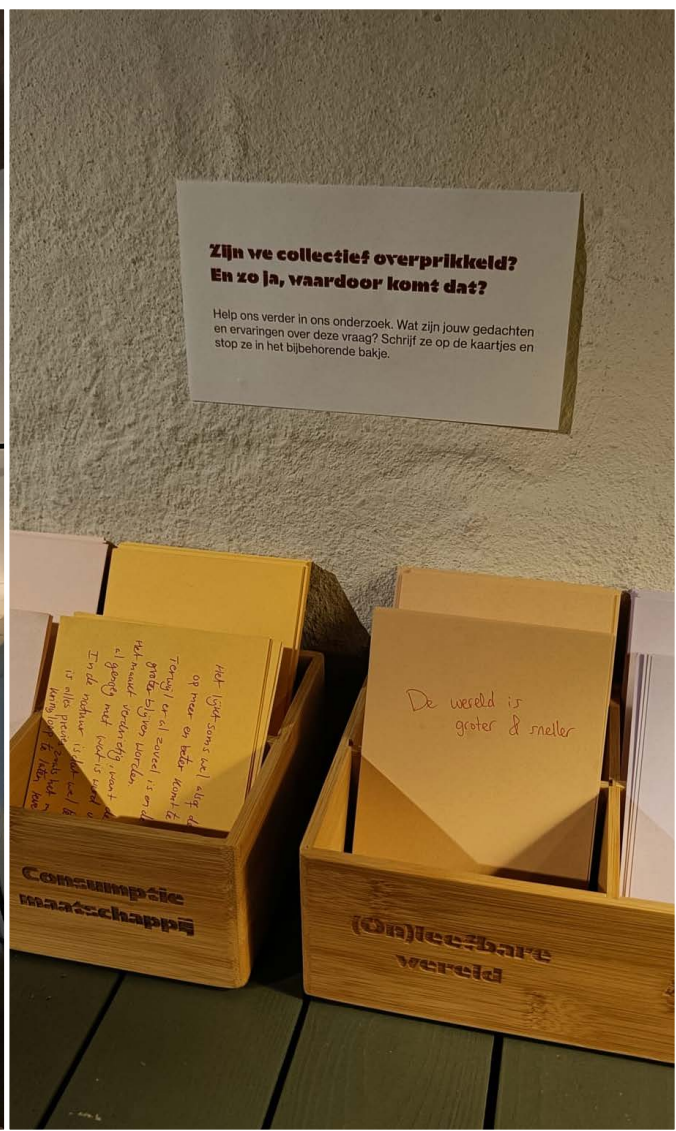 Zijn we collectief overprikkeld?
En zo ja, waardoor komt dat?
Help ons verder in ons onderzoek. Wat zijn jouw gedachten
en ervaringen over deze vraag? Schrijf ze op de kaartjes en
stop ze in het bijbehorende bakje.
Het lijkt soms wel alsof de
op meer en beter komt te
Terwijl er al zoveel is en de
groter blijven worden
Het maakt verdrietig, want de
al genoeg met wat is
In de natuur is dat wel
is alles precies zoals het
te laten
De wereld is
groter & sneller
Consumptie
maatschappij
(On)leefbare
wereld